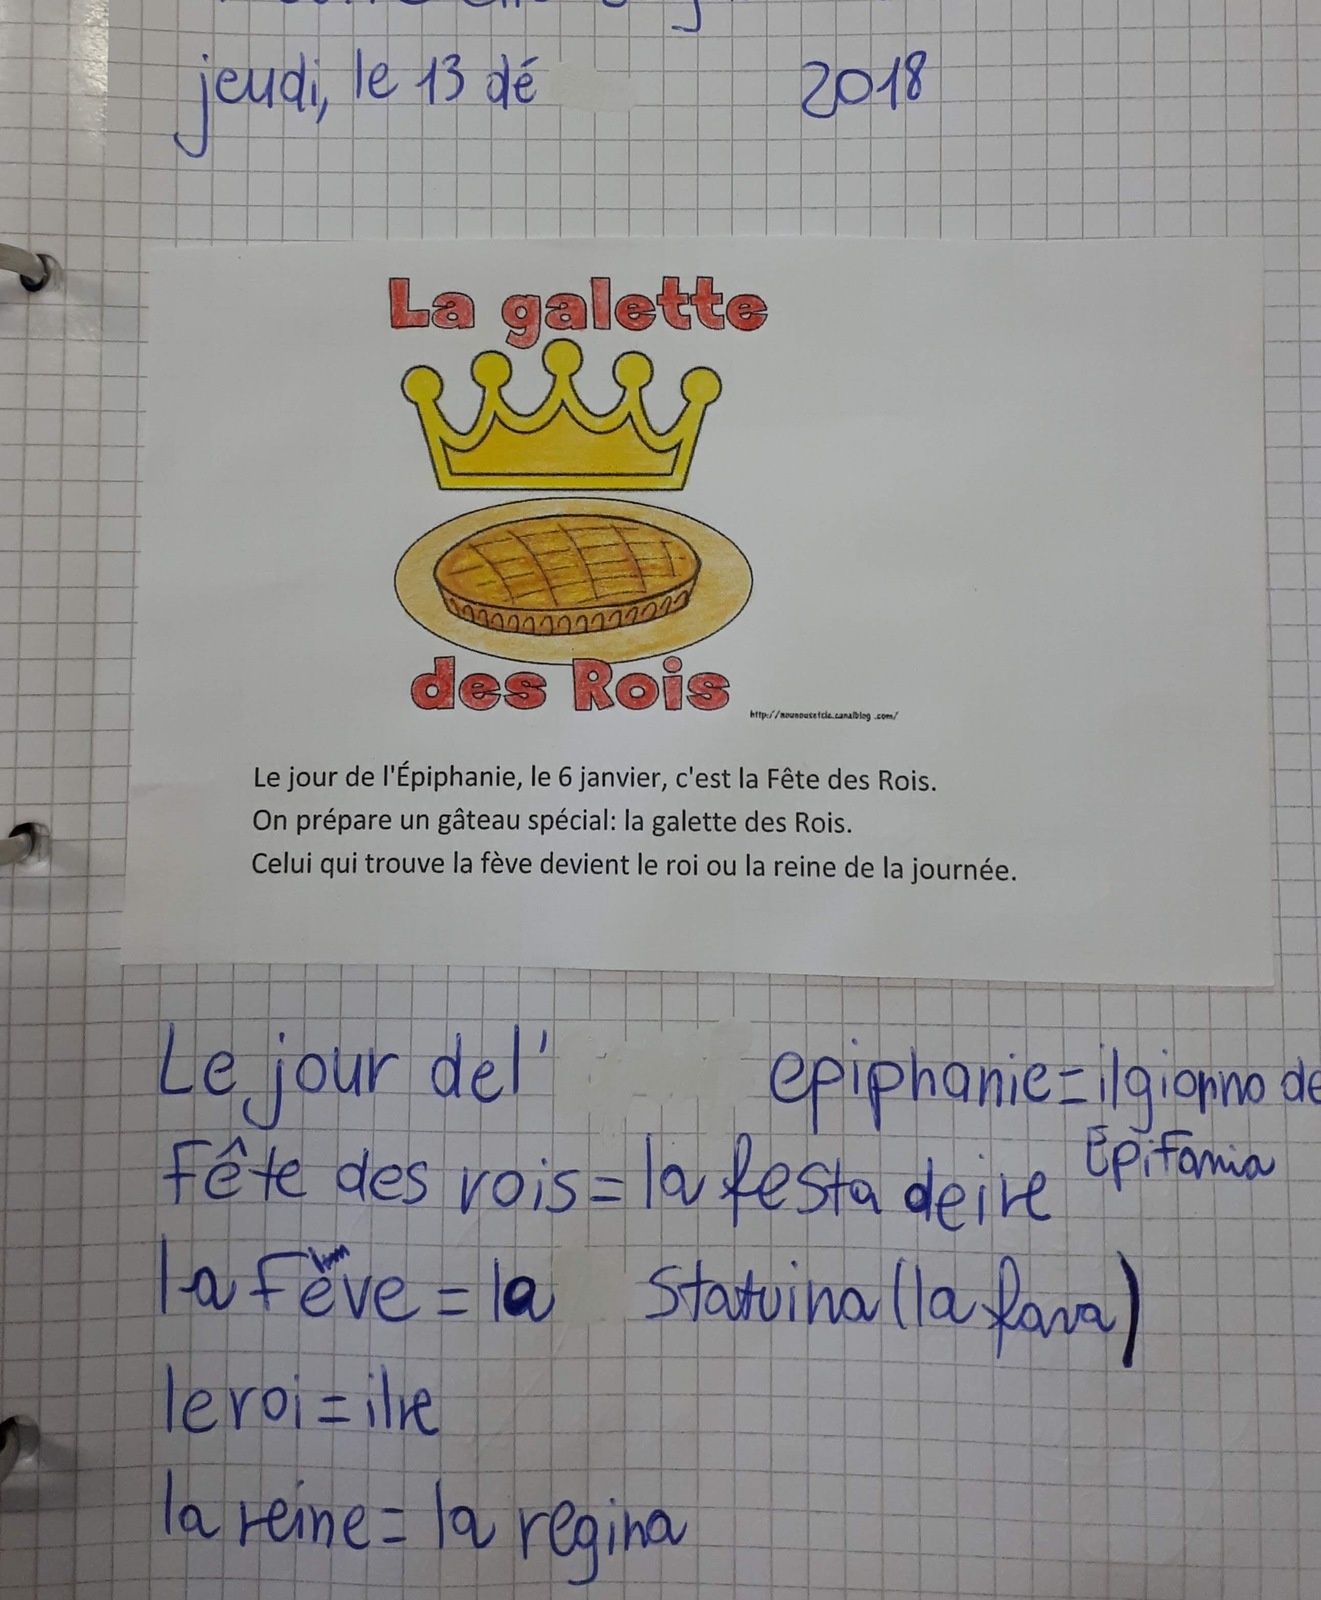 jeudi, le 13 dé 2018
La galette
des Rois
http://nounousetcie.canalblog.com/
Le jour de l'Épiphanie, le 6 janvier, c'est la Fête des Rois.
On prépare un gâteau spécial: la galette des Rois.
Celui qui trouve la fève devient le roi ou la reine de la journée.
Le jour del' epiphanie= il giorno de
Epifania
Fête des rois= la festa dei re
la fève = la statuina (la fava)
le roi = il re
la reine= la regina